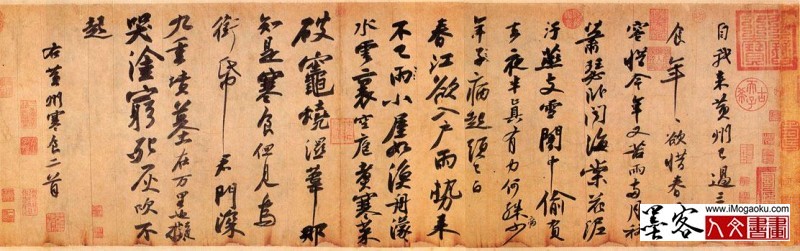 自我来黄州已過三
食年々欲惜春
容惜今年又苦雨兩月秋
蕭瑟卧聞海棠花泥
汙燕支雪闇中偷負
去夜半真有力何殊少
年子病起頭已白
春江欲入户雨勢来
不已雨小屋如漁舟濛々
水雲裏空庖煮寒菜
破竈燒濕葦那
知是寒食但見烏
銜帋君門深
九重墳墓在万里也擬
哭塗窮死灰吹不
起
右黄州寒食二首
www.iMogaoku.com
墨客
人文書畫